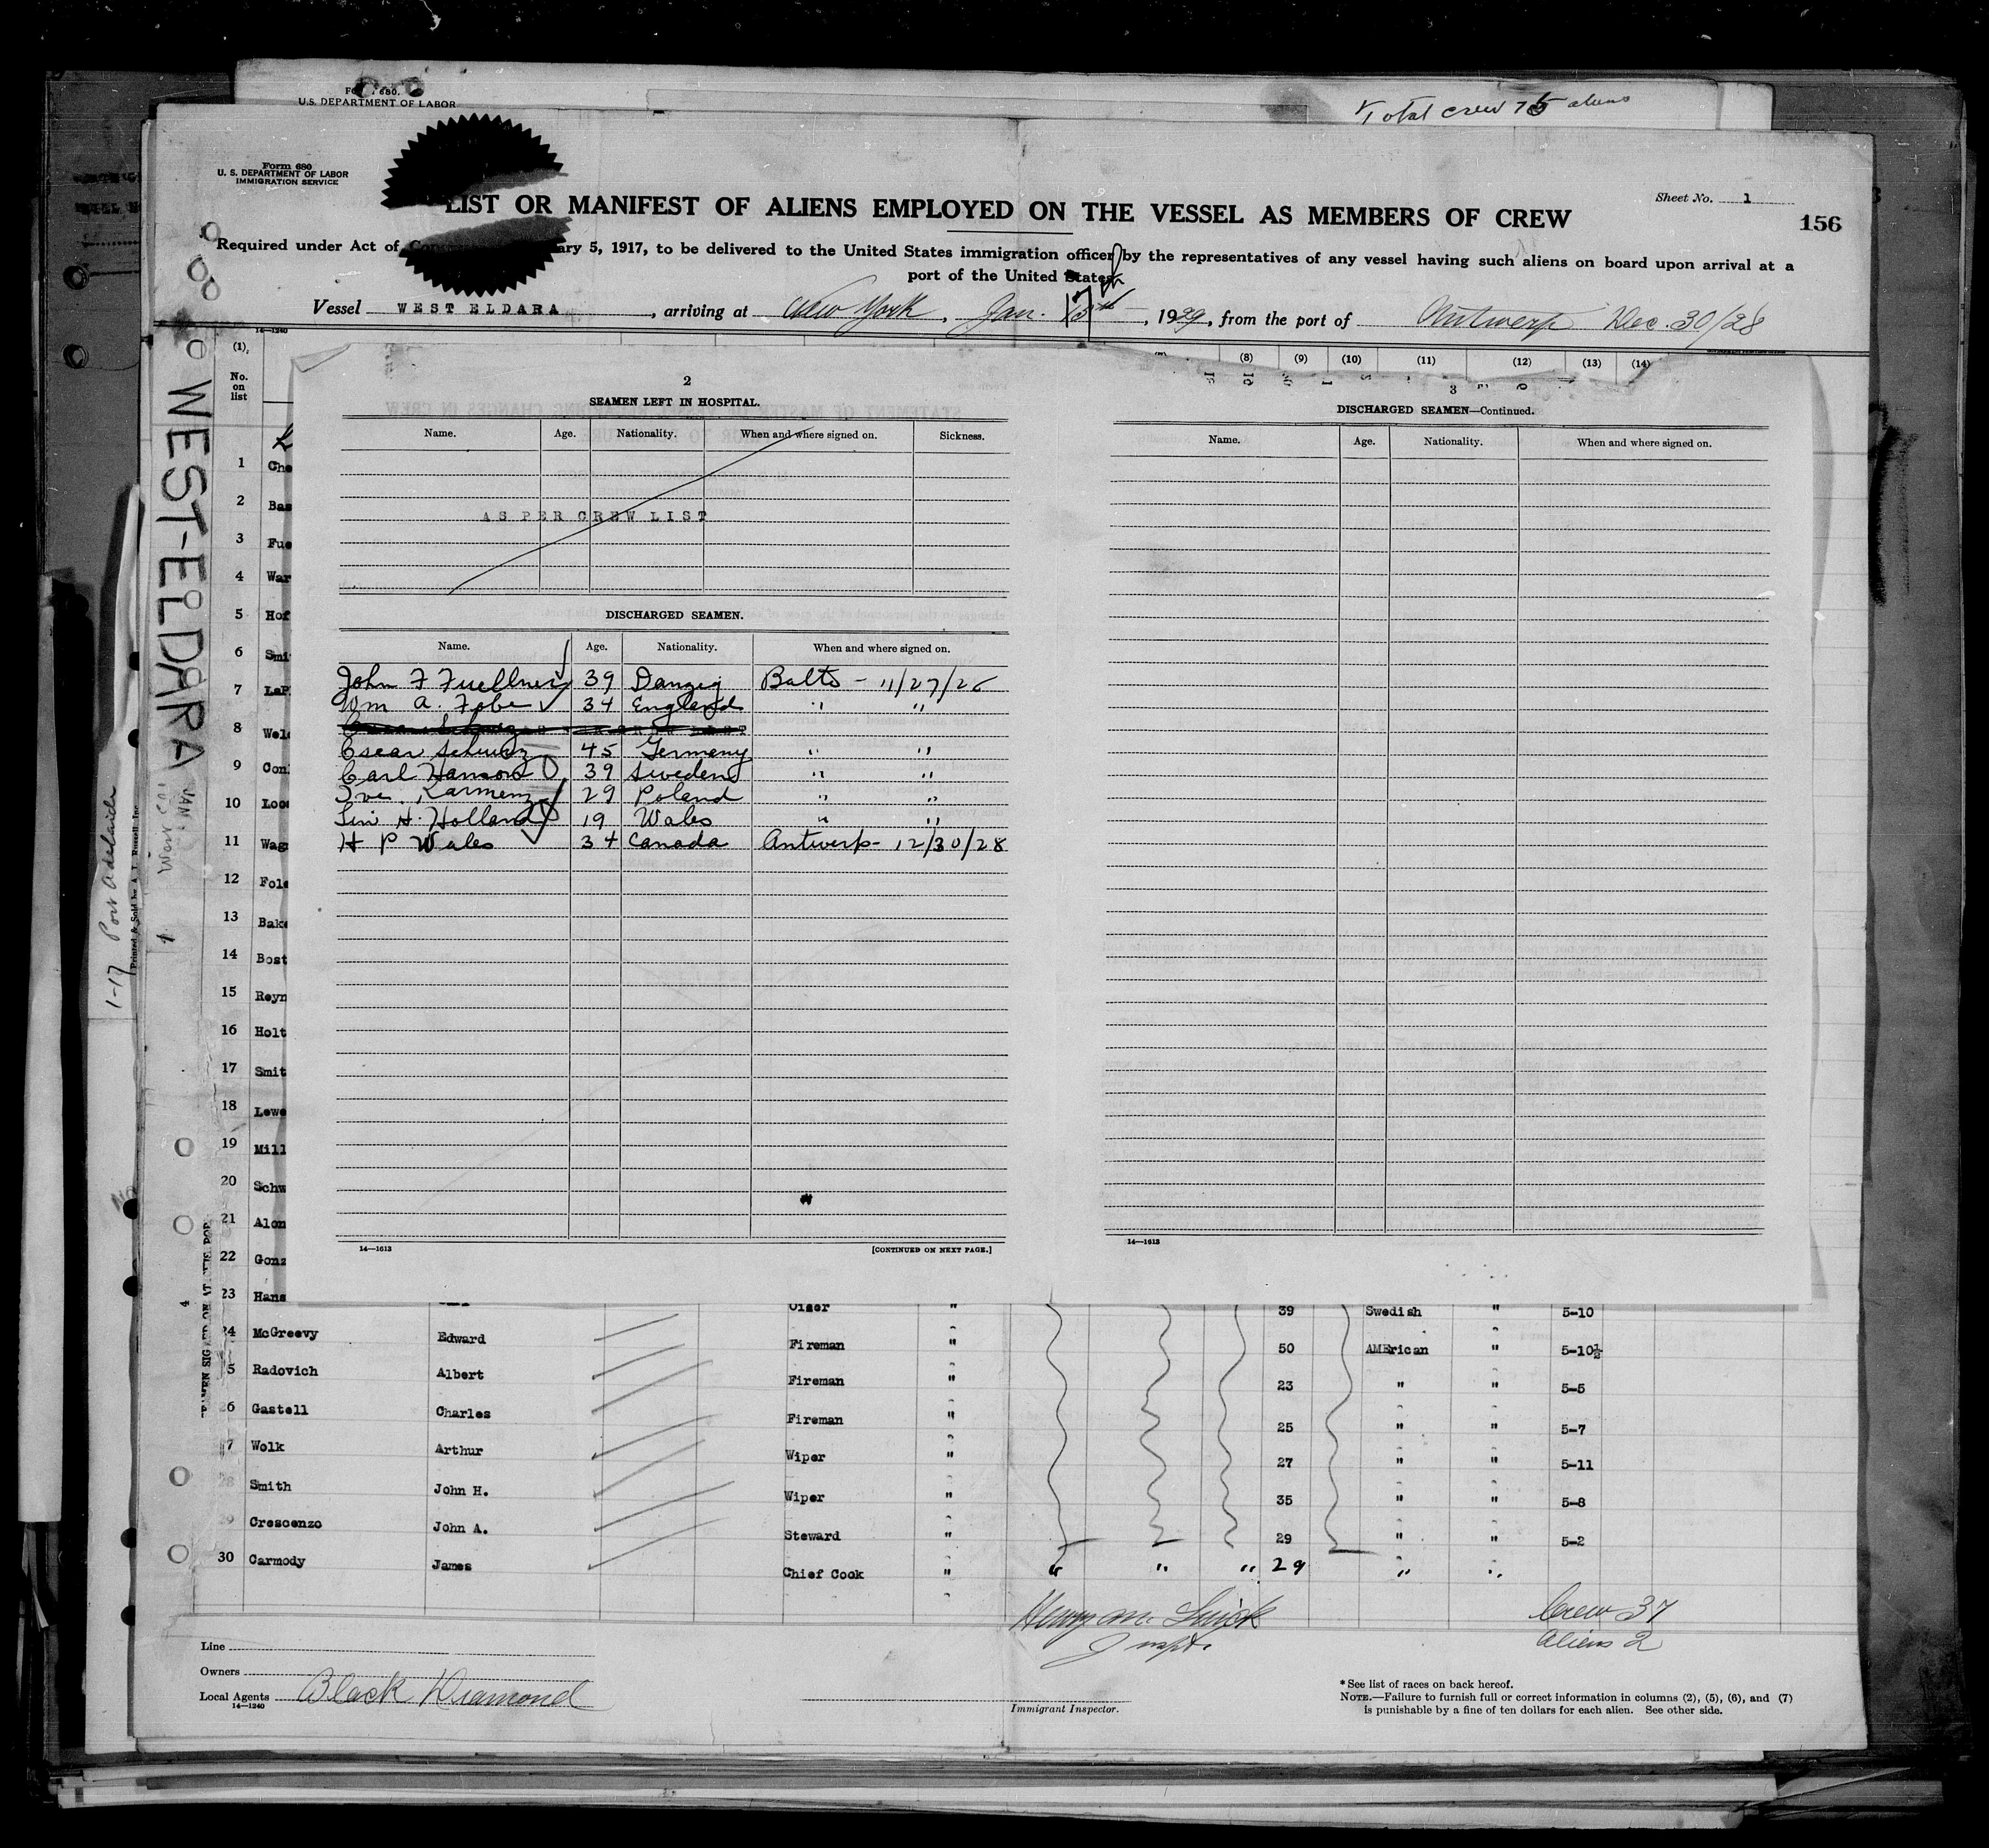 Form 680.
U.S. DEPARTMENT OF LABOR
Total crew 75 aliens
Form 680
U. S. DEPARTMENT OF LABOR
IMMIGRATION SERVICE
Sheet No. 1
156
LIST OR MANIFEST OF ALIENS EMPLOYED ON THE VESSEL AS MEMBERS OF CREW
Required under Act of ary 5, 1917, to be delivered to the United States immigration officer by the representatives of any vessel having such aliens on board upon arrival at a
port of the United States
Vessel WEST ELDARA, arriving at New York, Jan. 17th, 1929, from the port of Antwerp Dec. 30/28
14—1240
(1) (8) (9) (10) (11) (12) (13) (14)
No. on list
WEST-ELDARA
1-17 Port Adelaide
1 Che
2 Bas
3 Fue
4 War
5 Hof
6 Smi
7 LaF
8 Wel
9 Con
10 Loo
11 Wag
12 Fole
13 Bake
14 Bost
15 Reyn
16 Holt
17 Smit
18 Lewe
19 Mill
20 Schw
21 Alon
22 Gonz
23 Hans
2
SEAMEN LEFT IN HOSPITAL.
Name. Age. Nationality. When and where signed on. Sickness.
AS PER CREW LIST
DISCHARGED SEAMEN.
Name. Age. Nationality. When and where signed on.
John F Fuellner 39 Danzig Balto - 11/27/28
Wm A. Fobe 34 England " "
Oscar Schwarz 45 Germany " "
Carl Hanson 39 Sweden " "
Karmenz 29 Poland " "
H. Holland 19 Wales " "
H P Wales 34 Canada Antwerp- 12/30/28
14—1613
[CONTINUED ON NEXT PAGE.]
3
DISCHARGED SEAMEN—Continued.
Name. Age. Nationality. When and where signed on.
14—1613
Oiler " 39 Swedish " 5-10
24 McGreevy Edward Fireman " 50 AMErican " 5-10½
5 Radovich Albert Fireman " 23 " " 5-5
26 Gastell Charles Fireman " 25 " " 5-7
7 Wolk Arthur Wiper " 27 " " 5-11
28 Smith John H. Wiper " 35 " " 5-8
29 Crescenzo John A. Steward " 29 " " 5-2
30 Carmody James Chief Cook " " " " 29 " "
Inspt.
Crew 37
Aliens 2
Line
Owners
Local Agents Black Diamond
14—1240
Immigrant Inspector.
* See list of races on back hereof.
NOTE.—Failure to furnish full or correct information in columns (2), (5), (6), and (7)
is punishable by a fine of ten dollars for each alien. See other side.